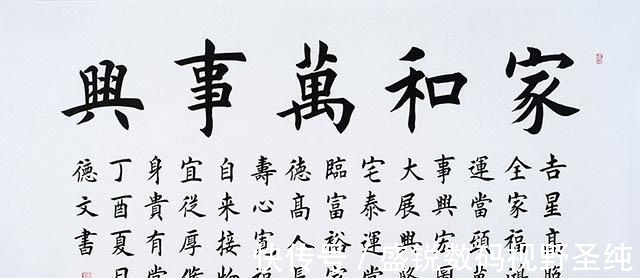 家和萬事興
吉星高照
全家福鴻
運當頭萬
事興宏圖
大展興隆
宅泰運當
臨富裕家
德高人長
壽心寬福
自来接物
宜從厚
身貴有常
丁酉夏日
德文書
快传号 / 盛锐数码视野圣纯